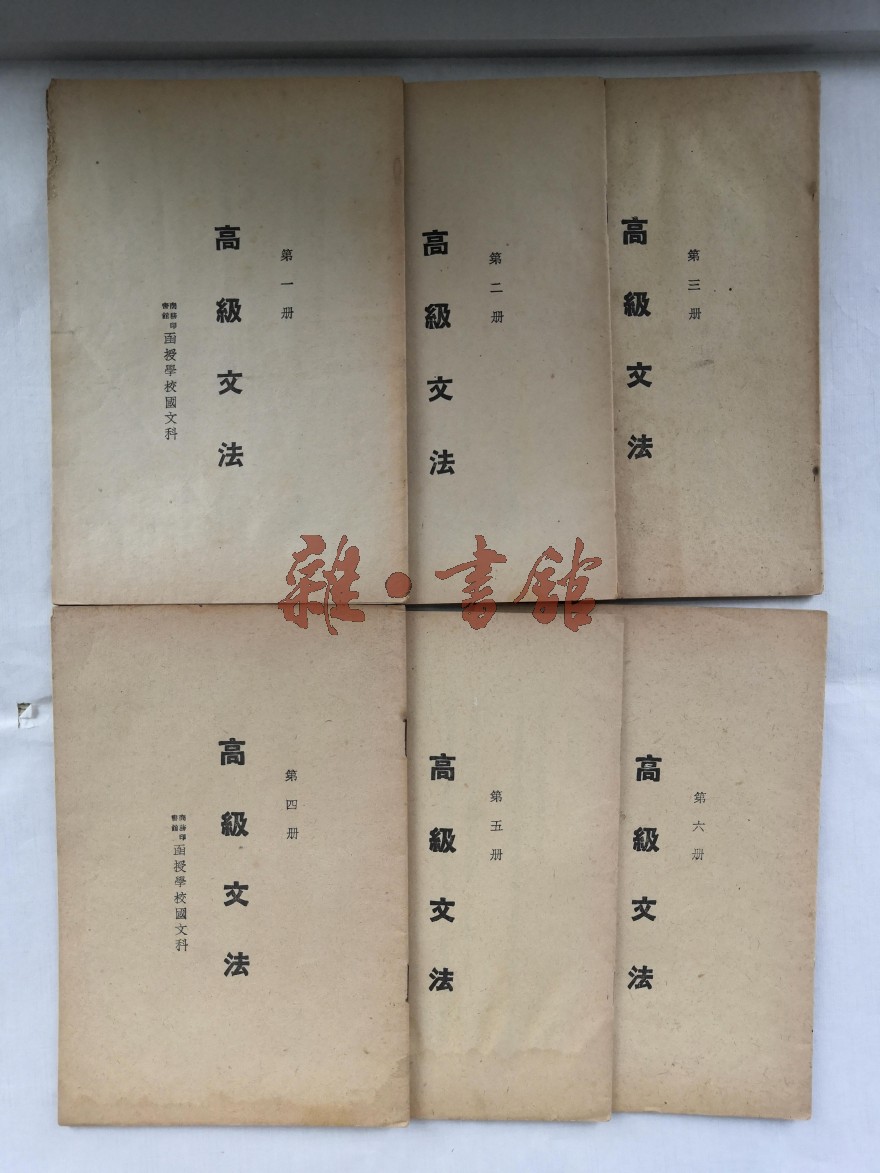 第一册
高級文法
商務印書館
函授學校國文科
第二册
高級文法
第三册
高級文法
雜·書館
第四册
高級文法
商務印書館
函授學校國文科
第五册
高級文法
第六册
高級文法